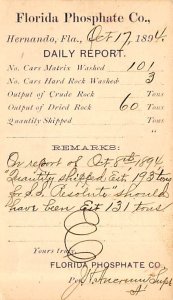 Florida Phosphate Co.,
Hernando, Fla., Oct 17, 1894.
DAILY REPORT.
No. Cars Matrix Washed 101
No. Cars Hard Rock Washed 3
Output of Crude Rock Tons
Output of Dried Rock 60 Tons
Quantity Shipped Tons
REMARKS:
On report of Oct 8th 1894
Quantity shipped Est. 193 tons
for S.S. Resolute should
have been Est 131 tons
Yours truly,
FLORIDA PHOSPHATE CO.
Per Supt